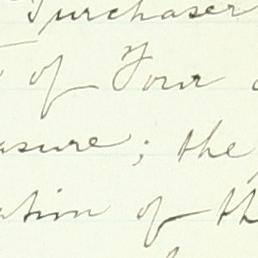 Purchaser
of Your
asure; the
ation of th